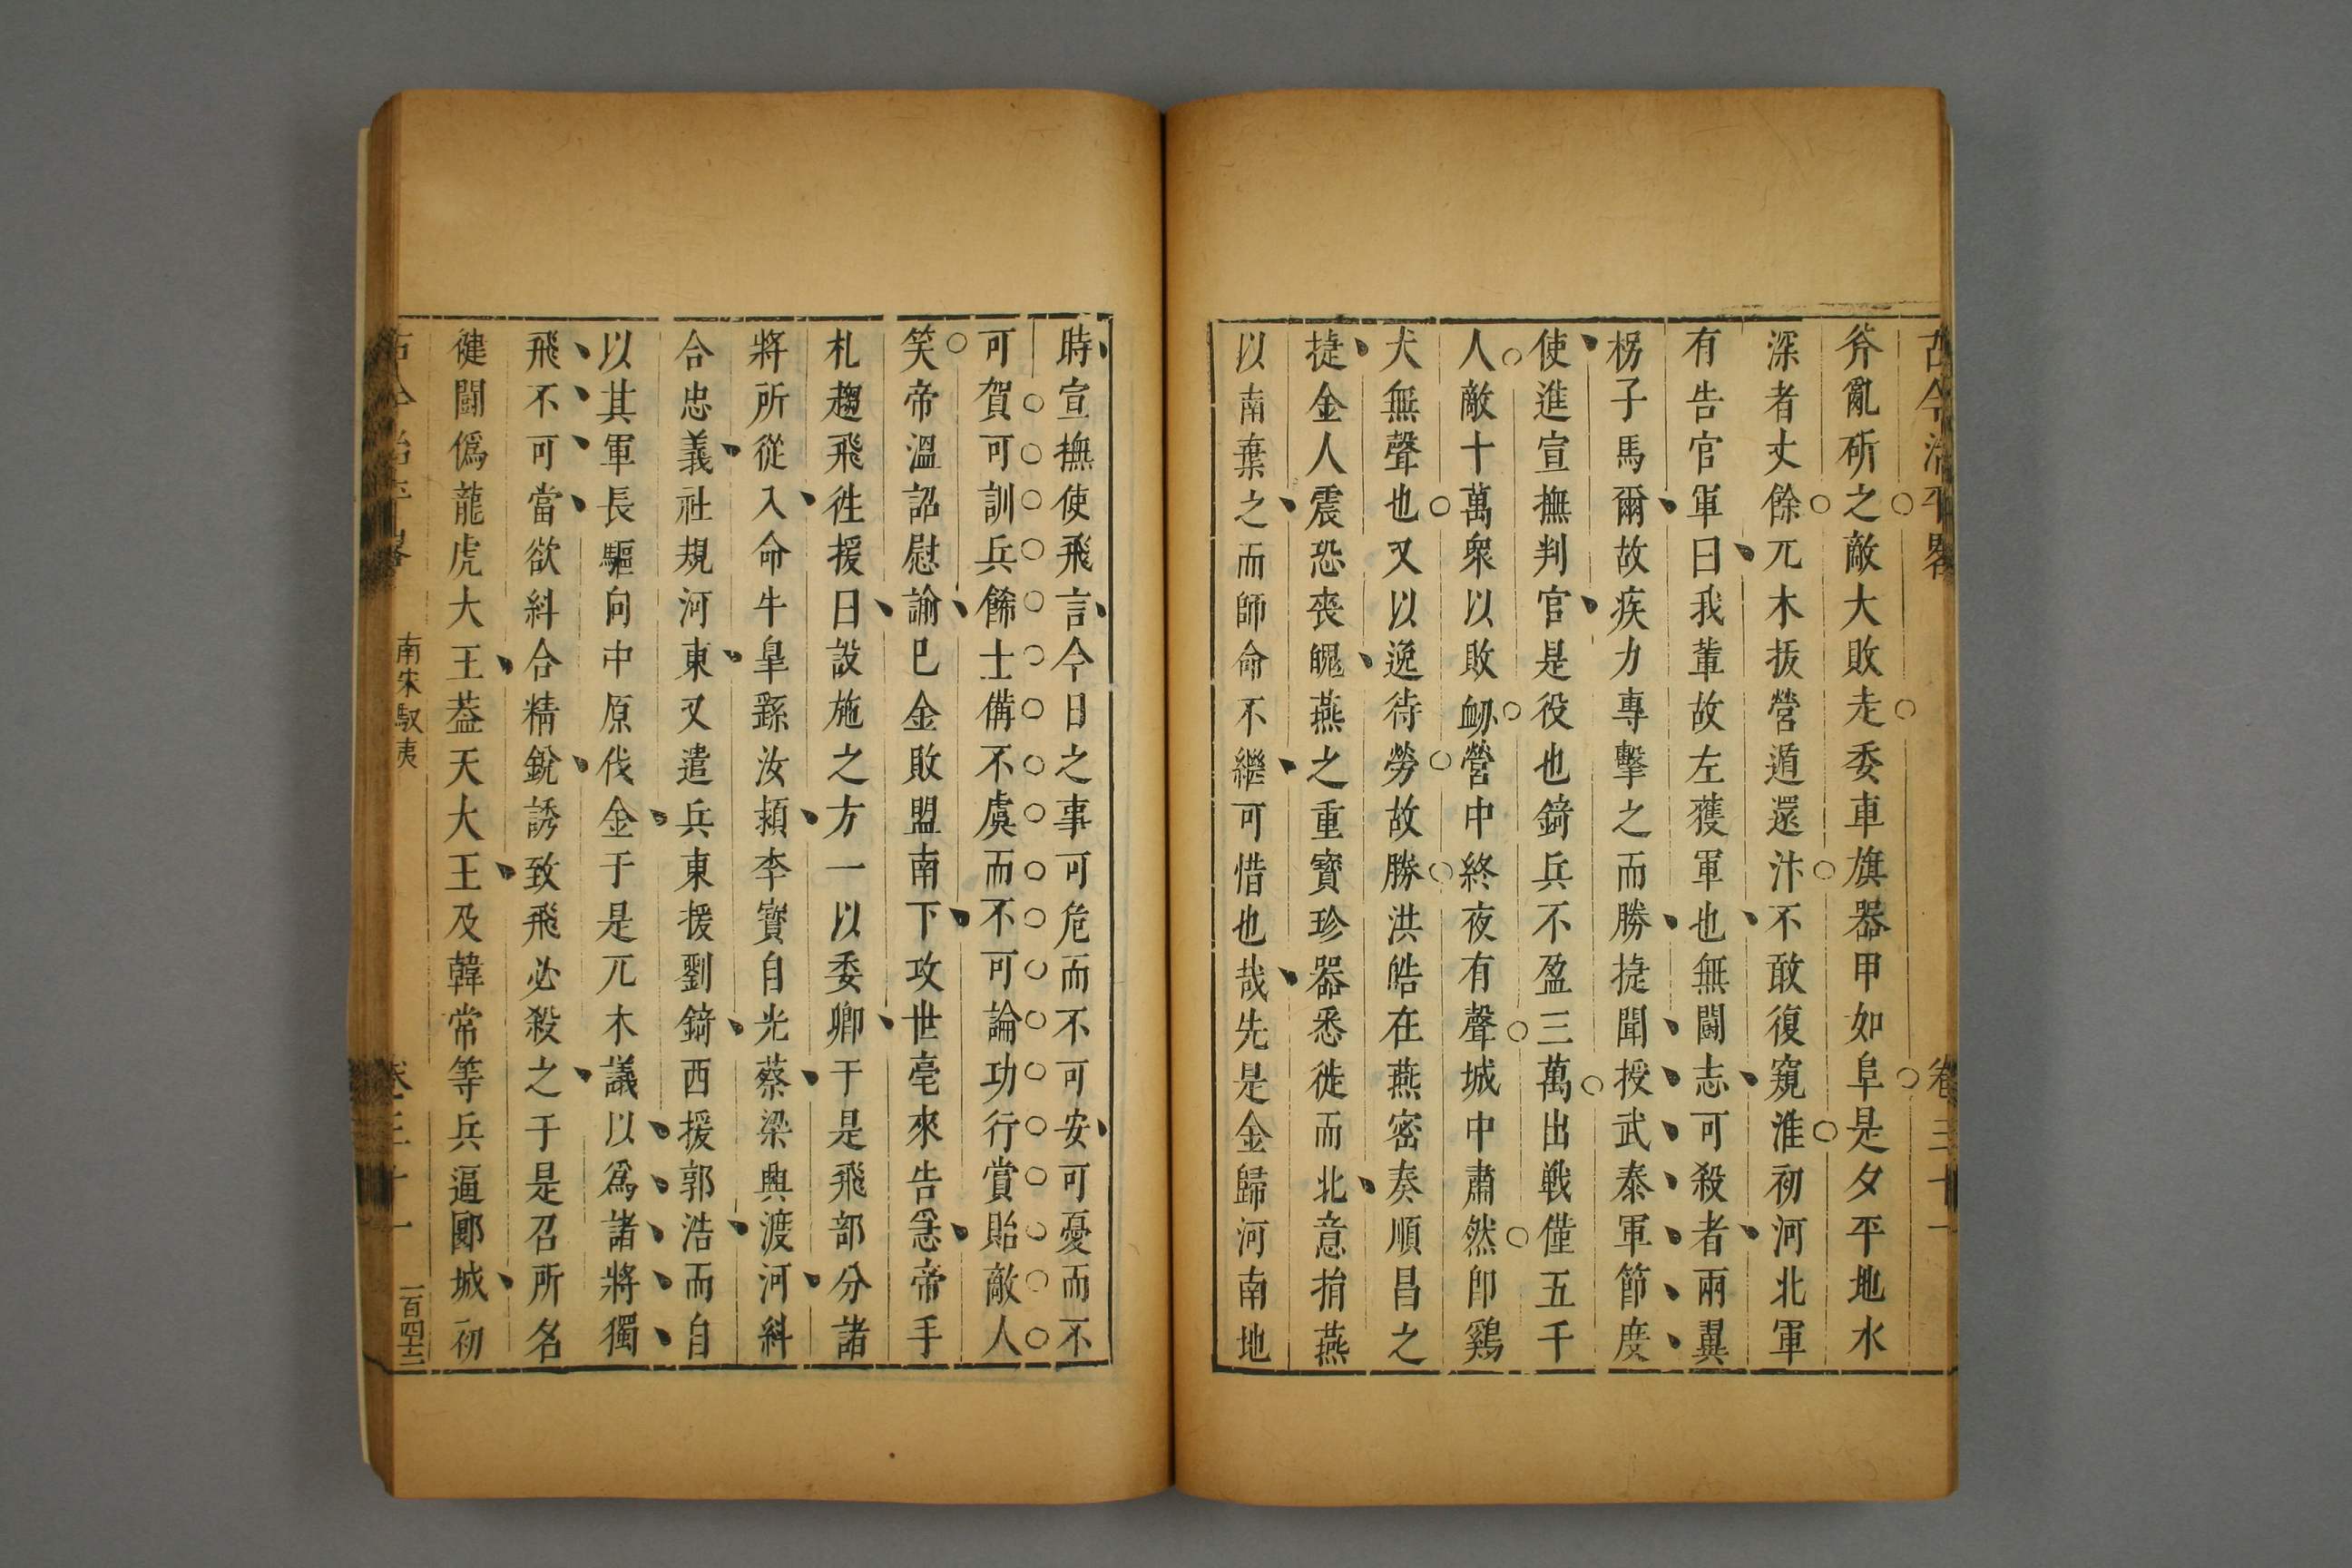 古今治平畧 卷三十一
斧亂斫之敵大敗走委車旗器甲如阜是夕平地水
深者丈餘兀木拔營遁還汴不敢復窺淮初河北軍
有告官軍曰我軰故左獲軍也無鬬志可殺者兩翼
枴子馬爾故疾力專擊之而勝捷聞授武泰軍節度
使進宣撫判官是役也錡兵不盈三萬出戰僅五千
人敵十萬衆以敗衂營中終夜有聲城中肅然卽鷄
犬無聲也又以逸待勞故勝洪皓在燕密奏順昌之
捷金人震恐喪魄燕之重寶珍器悉徙而北意捐燕
以南棄之而師命不繼可惜也哉先是金歸河南地
時宣撫使飛言今日之事可危而不可安可憂而不
可賀可訓兵餙士備不虞而不可論功行賞貽敵人
笑帝溫詔慰諭已金敗盟南下攻世亳來告急帝手
札趨飛徃援日設施之方一以委卿于是飛部分諸
將所從入命牛臯孫汝頻李寶自光蔡梁興渡河糾
合忠義社規河東又遣兵東援劉錡西援郭浩而自
以其軍長驅向中原伐金于是兀木議以爲諸將獨
飛不可當欲糾合精銳誘致飛必殺之于是召所名
健鬬僞龍虎大王葢天大王及韓常等兵逼郾城初
古今治平畧 南宋馭夷 卷三十一 一百四十三